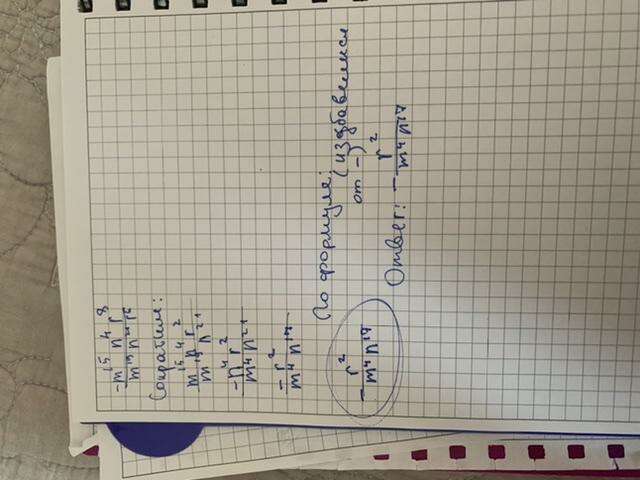 -m¹⁵ n⁴ r⁸ / m¹⁹ n²¹ r⁶
Сократим:
m¹⁵ n⁴ r² / m¹⁹ n²¹
-n⁴ r² / m⁴ n²¹
- r² / m⁴ n¹⁷
По формуле: (избавляемся
от -)
- r² / m⁴ n¹⁷
Ответ: - r² / m⁴ n¹⁷